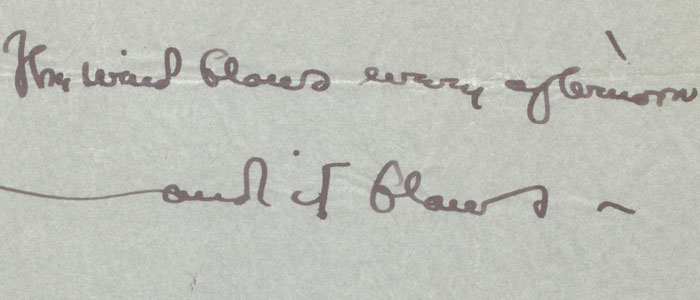 The wind blows every afternoon
— and it blows ~